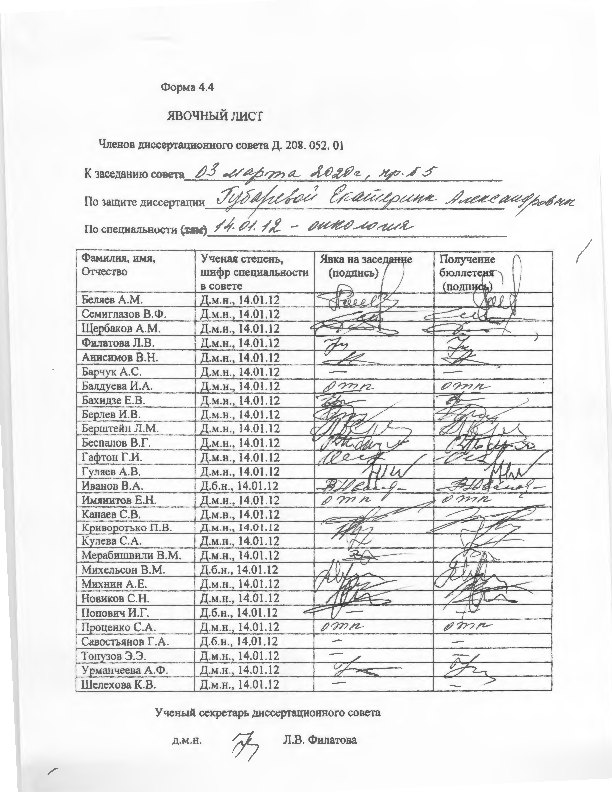 Форма 4.4
ЯВОЧНЫЙ ЛИСТ
Членов диссертационного совета Д. 208. 052. 01
К заседанию совета 03 марта 2020г, пр. № 5
По защите диссертации Губаревой Екатерины Александровны
По специальности (там) 14.01.12 – онкология
Фамилия, имя, Отчество Ученая степень, шифр специальности в совете Явка на заседание (подпись) Получение бюллетеня (подпись)
Беляев А.М. Д.м.н., 14.01.12
Семиглазов В.Ф. Д.м.н., 14.01.12
Щербаков А.М. Д.м.н., 14.01.12
Филатова Л.В. Д.м.н., 14.01.12
Анисимов В.Н. Д.м.н., 14.01.12
Барчук А.С. Д.м.н., 14.01.12 – –
Балдуева И.А. Д.м.н., 14.01.12 отп отп
Бахидзе Е.В. Д.м.н., 14.01.12
Берлев И.В. Д.м.н., 14.01.12
Берштейн Л.М. Д.м.н., 14.01.12
Беспалов В.Г. Д.м.н., 14.01.12
Гафтон Г.И. Д.м.н., 14.01.12
Гуляев А.В. Д.м.н., 14.01.12
Иванов В.А. Д.б.н., 14.01.12
Имянитов Е.Н. Д.м.н., 14.01.12 отп отп
Канаев С.В. Д.м.н., 14.01.12
Криворотько П.В. Д.м.н., 14.01.12
Кулева С.А. Д.м.н., 14.01.12
Мерабишвили В.М. Д.м.н., 14.01.12
Михельсон В.М. Д.б.н., 14.01.12
Михнин А.Е. Д.м.н., 14.01.12
Новиков С.Н. Д.м.н., 14.01.12
Попович И.Г. Д.б.н., 14.01.12
Проценко С.А. Д.м.н., 14.01.12 отп отп
Савостьянов Г.А. Д.б.н., 14.01.12 – –
Топузов Э.Э. Д.м.н., 14.01.12 – –
Урманчеева А.Ф. Д.м.н., 14.01.12
Шелехова К.В. Д.м.н., 14.01.12 – –
Ученый секретарь диссертационного совета
д.м.н. Л.В. Филатова